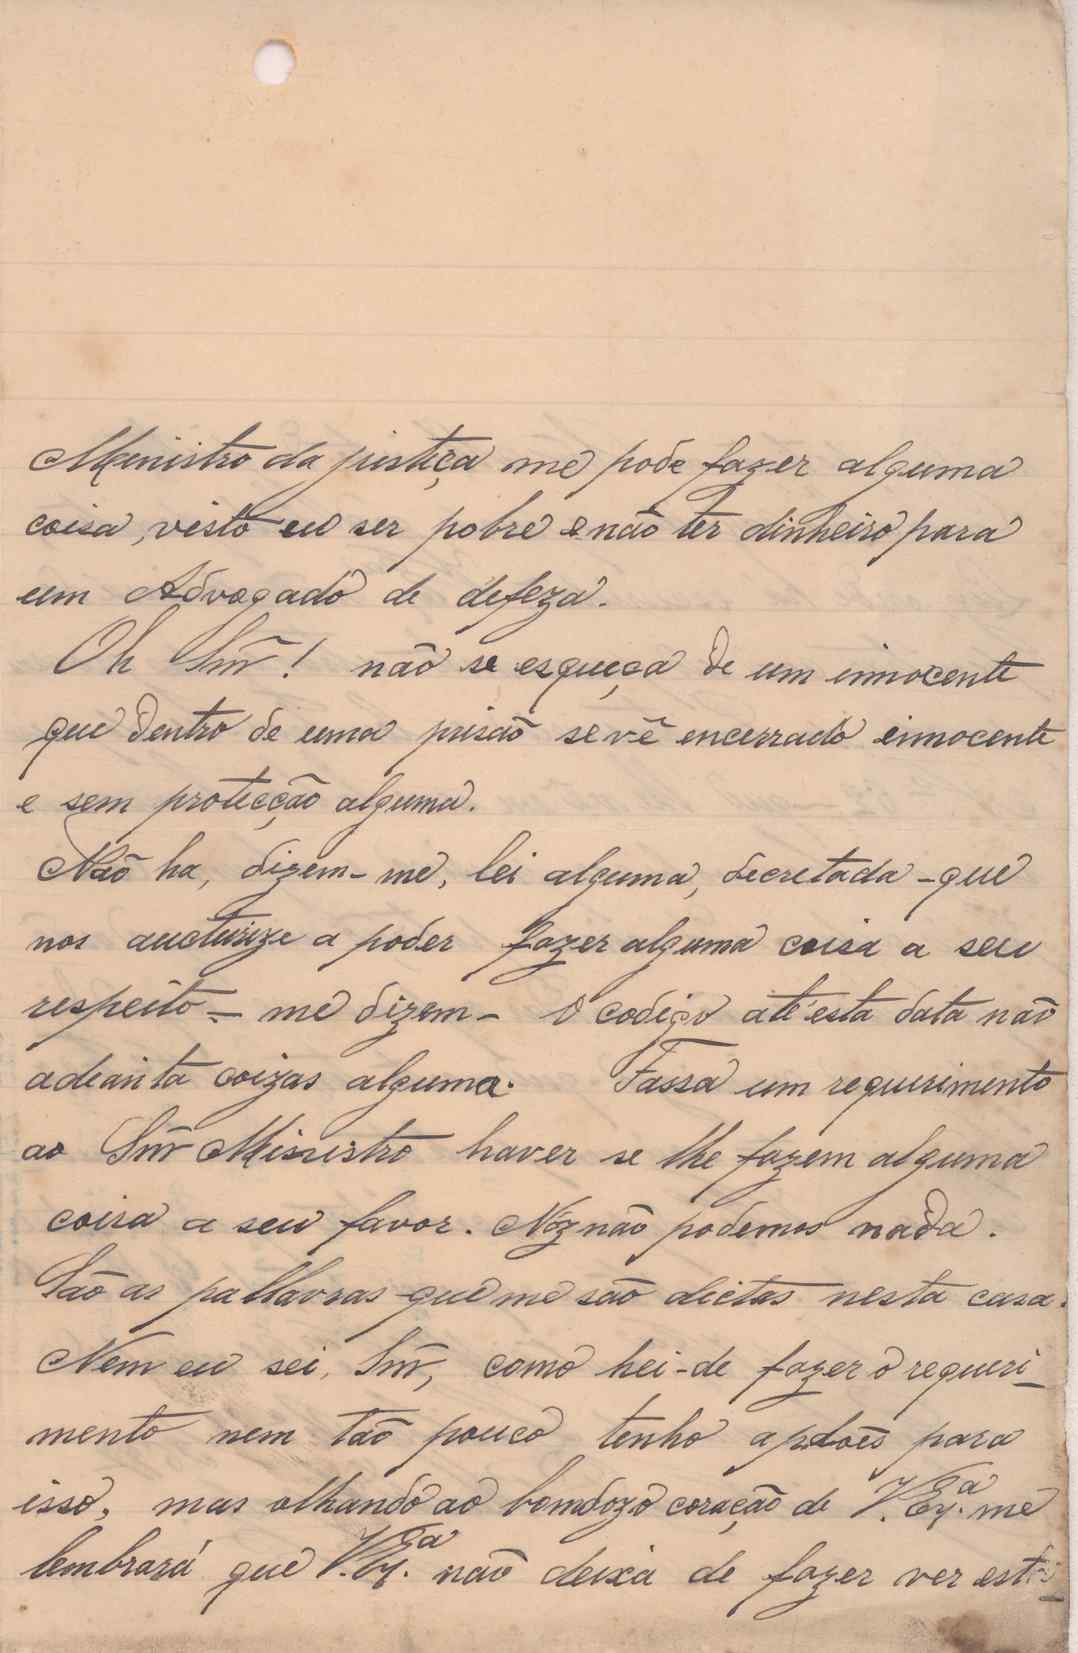 Menistro da justiça me pode fazer alguma
coisa, visto eu ser pobre e não ter dinheiro para
um Advogado de defeza.
Oh Snr̃! não se esqueça de um innocente
que dentro de uma prisão se vê encerrado innocente
e sem protecção alguma.
Não ha, dizem-me, lei alguma, decretada - que
nos aucturize a poder fazer alguma coisa a seu
respeito - me dizem - O codigo até esta data não
adeanta coizas alguma. Fassa um requerimento
ao Snr̃ Menistro haver se lhe fazem alguma
coisa a seu favor. Nóz não podemos nada.
São as pallavras que me são dictas nesta casa.
Nem eu sei, Snr̃, como hei-de fazer o requeri-
mento nem tão pouco tenho apdoẽs para
isso, mas olhando ao bomdozo coração de V. Exª. me
lembrará que V. Exª. não deixa de fazer ver